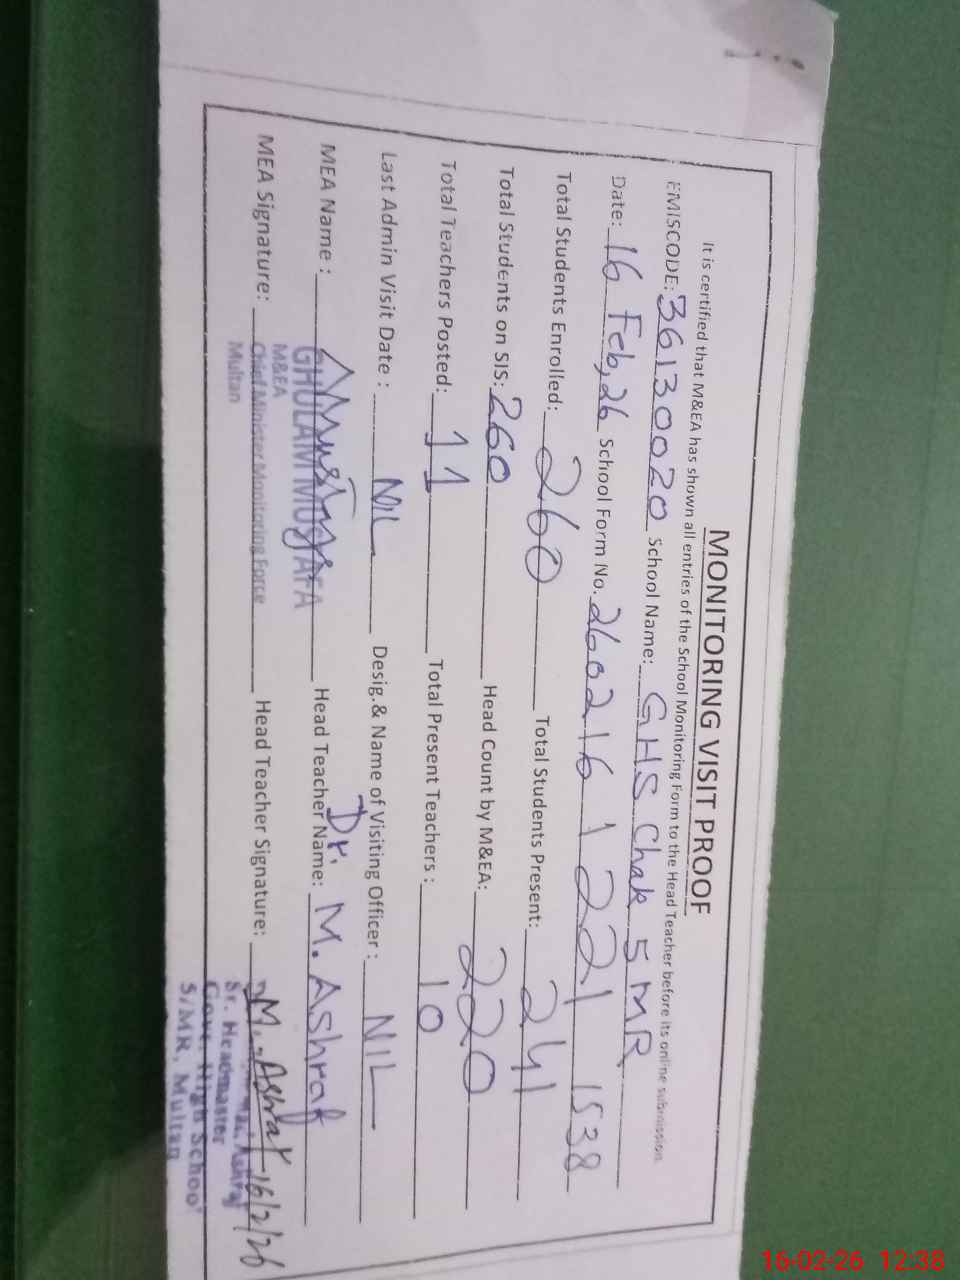 MONITORING VISIT PROOF
It is certified that M&EA has shown all entries of the School Monitoring Form to the Head Teacher before its online submission.
EMISCODE: 36130020 School Name: GHS Chak 5 MR
Date: 16 Feb, 26 School Form No. 2602161221 1538
Total Students Enrolled: 260 Total Students Present: 241
Total Students on SIS: 260 Head Count by M&EA: 220
Total Teachers Posted: 11 Total Present Teachers: 10
Last Admin Visit Date: NIL Desig.& Name of Visiting Officer: NIL
MEA Name: GHULAM MUSTAFA Head Teacher Name: Dr. M. Ashraf
M&EA
MEA Signature: Chief Minister Monitoring Force Head Teacher Signature: M. Ashraf 16/2/26
Multan
Ashraf
Sr. Headmaster
Govt. High School
5/MR, Multan
16-02-26 12:38